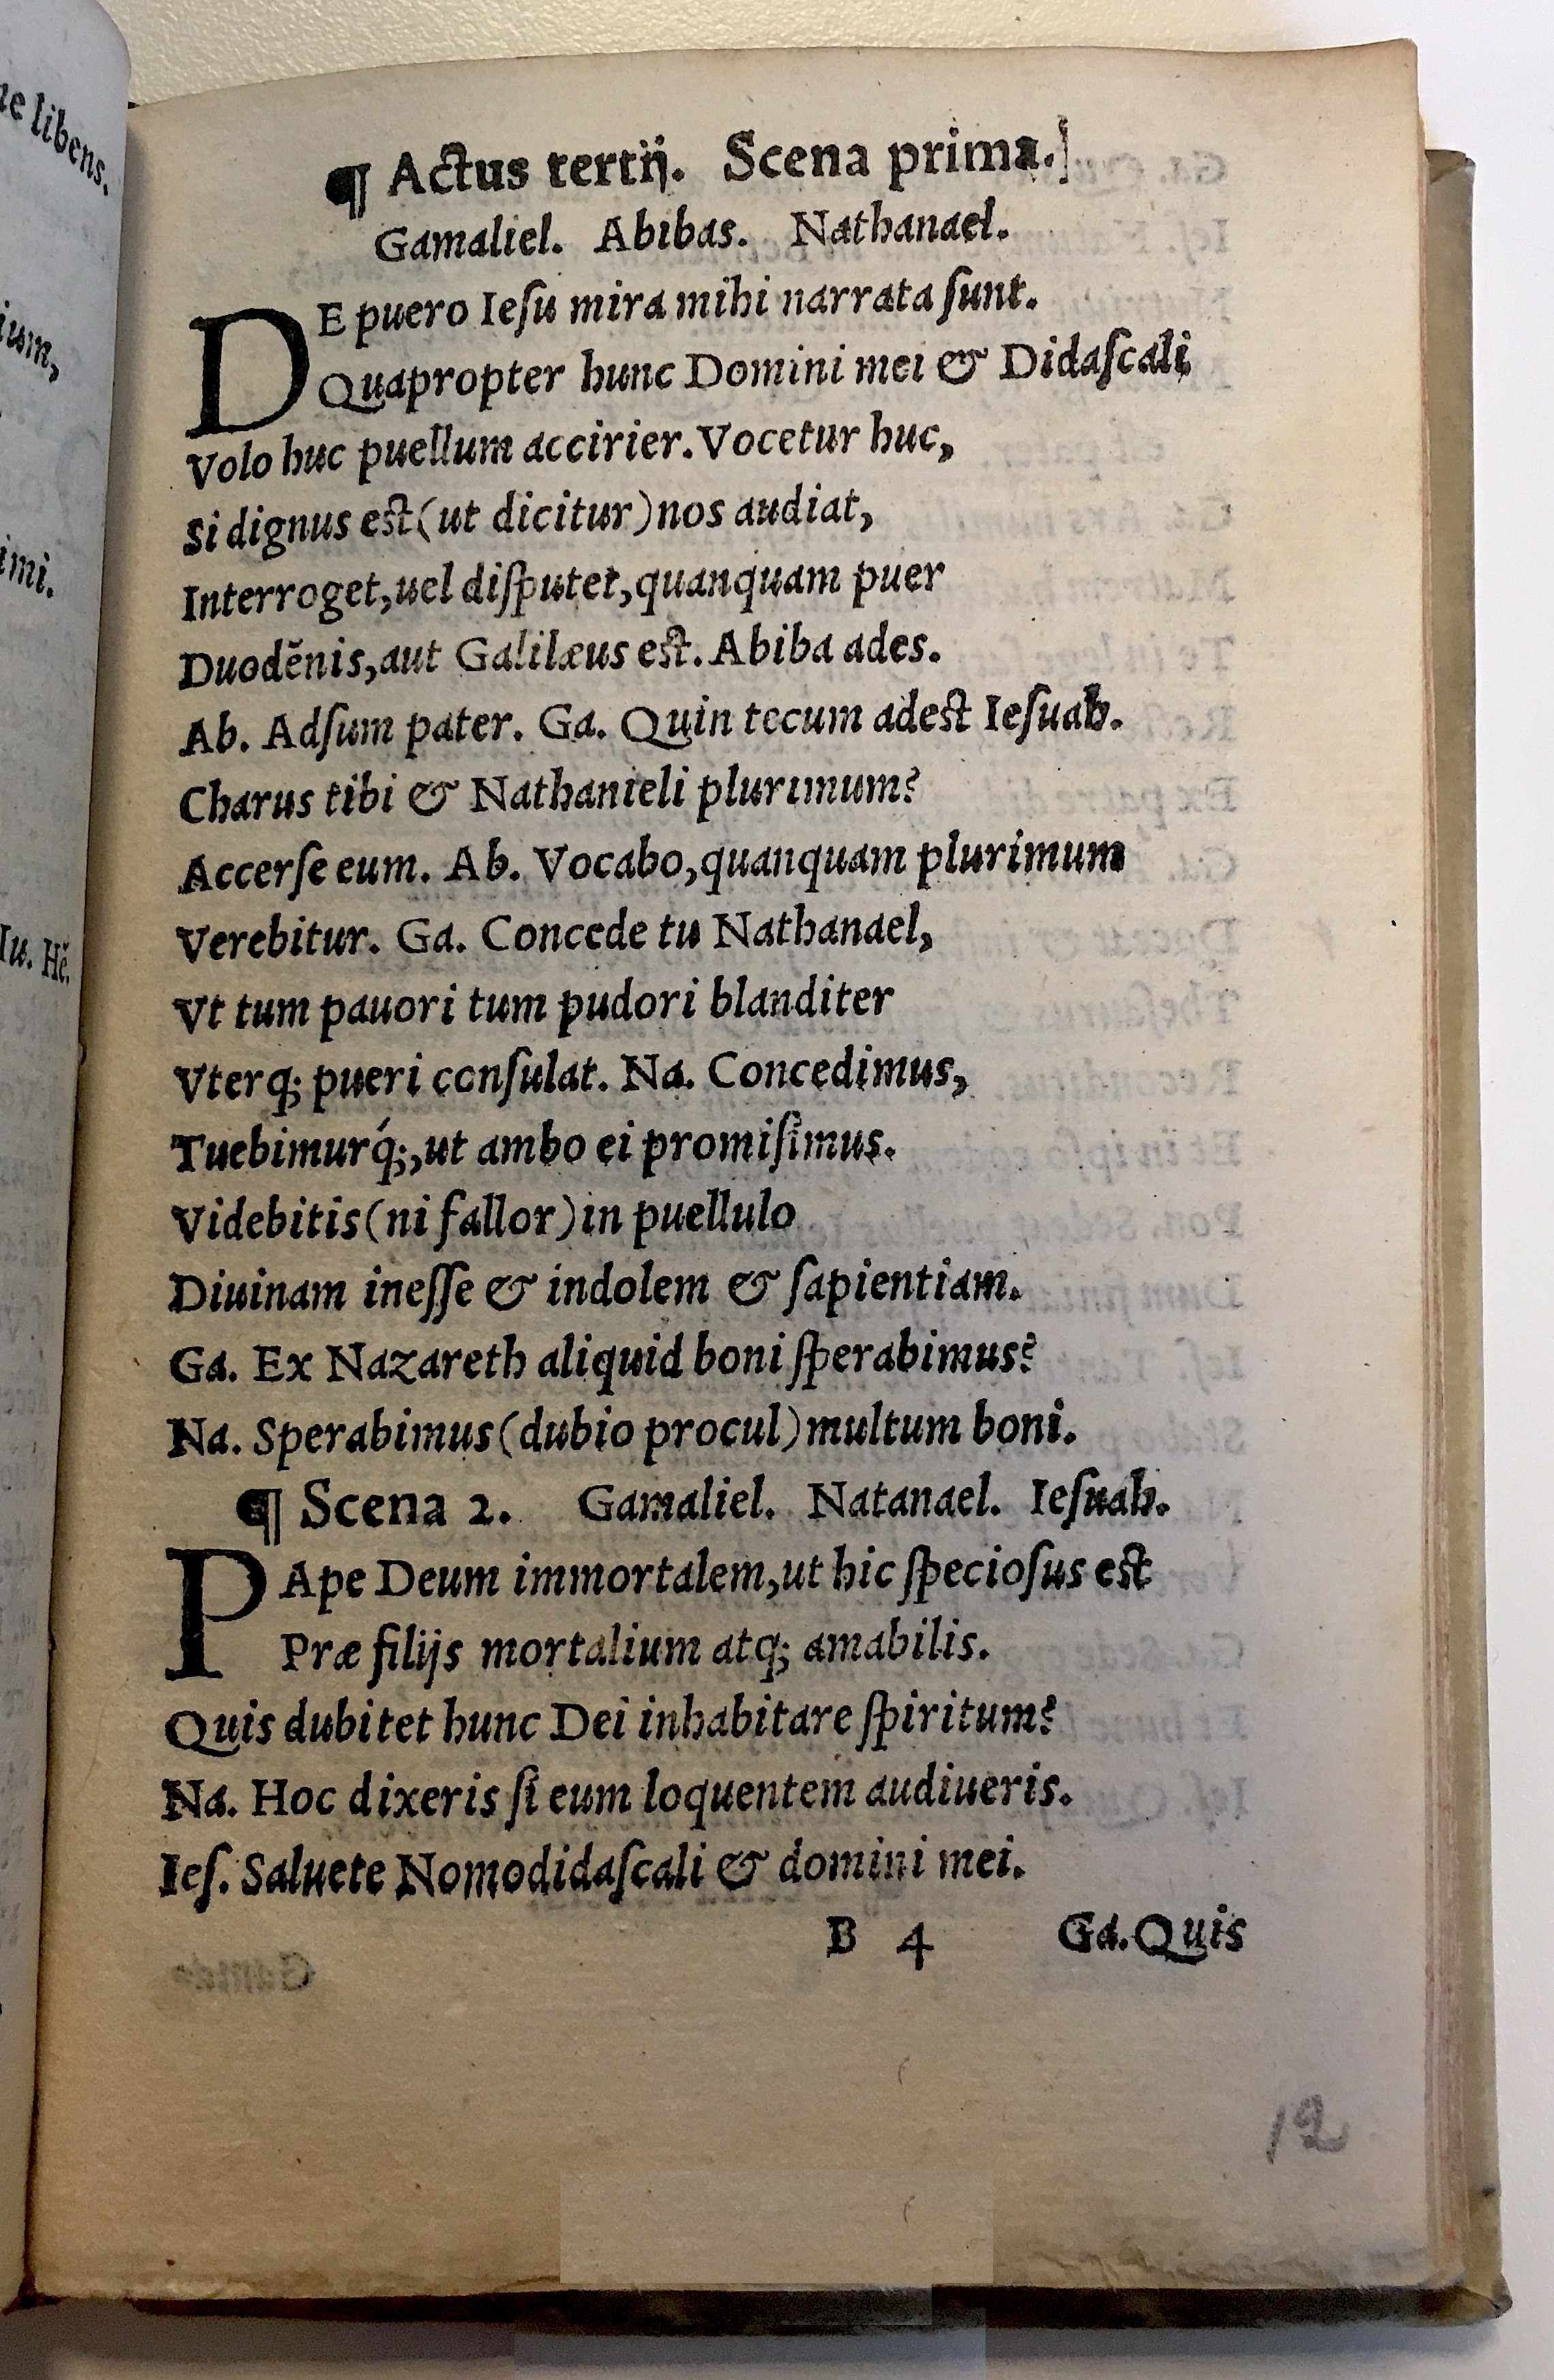 ue libens.
ium,
imi.
Iu. Hẽ.
¶ Actus tertij. Scena prima.
Gamaliel. Abibas. Nathanael.
DE puero Ieſu mira mihi narrata ſunt.
Quapropter hunc Domini mei & Didaſcali
Volo huc puellum accirier. Vocetur huc,
Si dignus est (ut dicitur) nos audiat,
Interroget, uel diſputet, quanquam puer
Duodẽnis, aut Galilæus est. Abiba ades.
Ab. Adſum pater. Ga. Quin tecum adest Ieſuah.
Charus tibi & Nathanieli plurimum?
Accerſe eum. Ab. Vocabo, quanquam plurimum
Verebitur. Ga. Concede tu Nathanael,
Vt tum pauori tum pudori blanditer
Vterq; pueri conſulat. Na. Concedimus,
Tuebimurq́;, ut ambo ei promiſimus.
Videbitis (ni fallor) in puellulo
Diuinam ineſſe & indolem & ſapientiam.
Ga. Ex Nazareth aliquid boni ſperabimus?
Na. Sperabimus (dubio procul) multum boni.
¶ Scena 2. Gamaliel. Natanael. Ieſuah.
PApe Deum immortalem, ut hic ſpecioſus est
Præ filijs mortalium atq; amabilis.
Quis dubitet hunc Dei inhabitare ſpiritum?
Na. Hoc dixeris ſi eum loquentem audiueris.
Ieſ. Saluete Nomodidaſcali & domini mei.
B 4 Ga. Quis
12